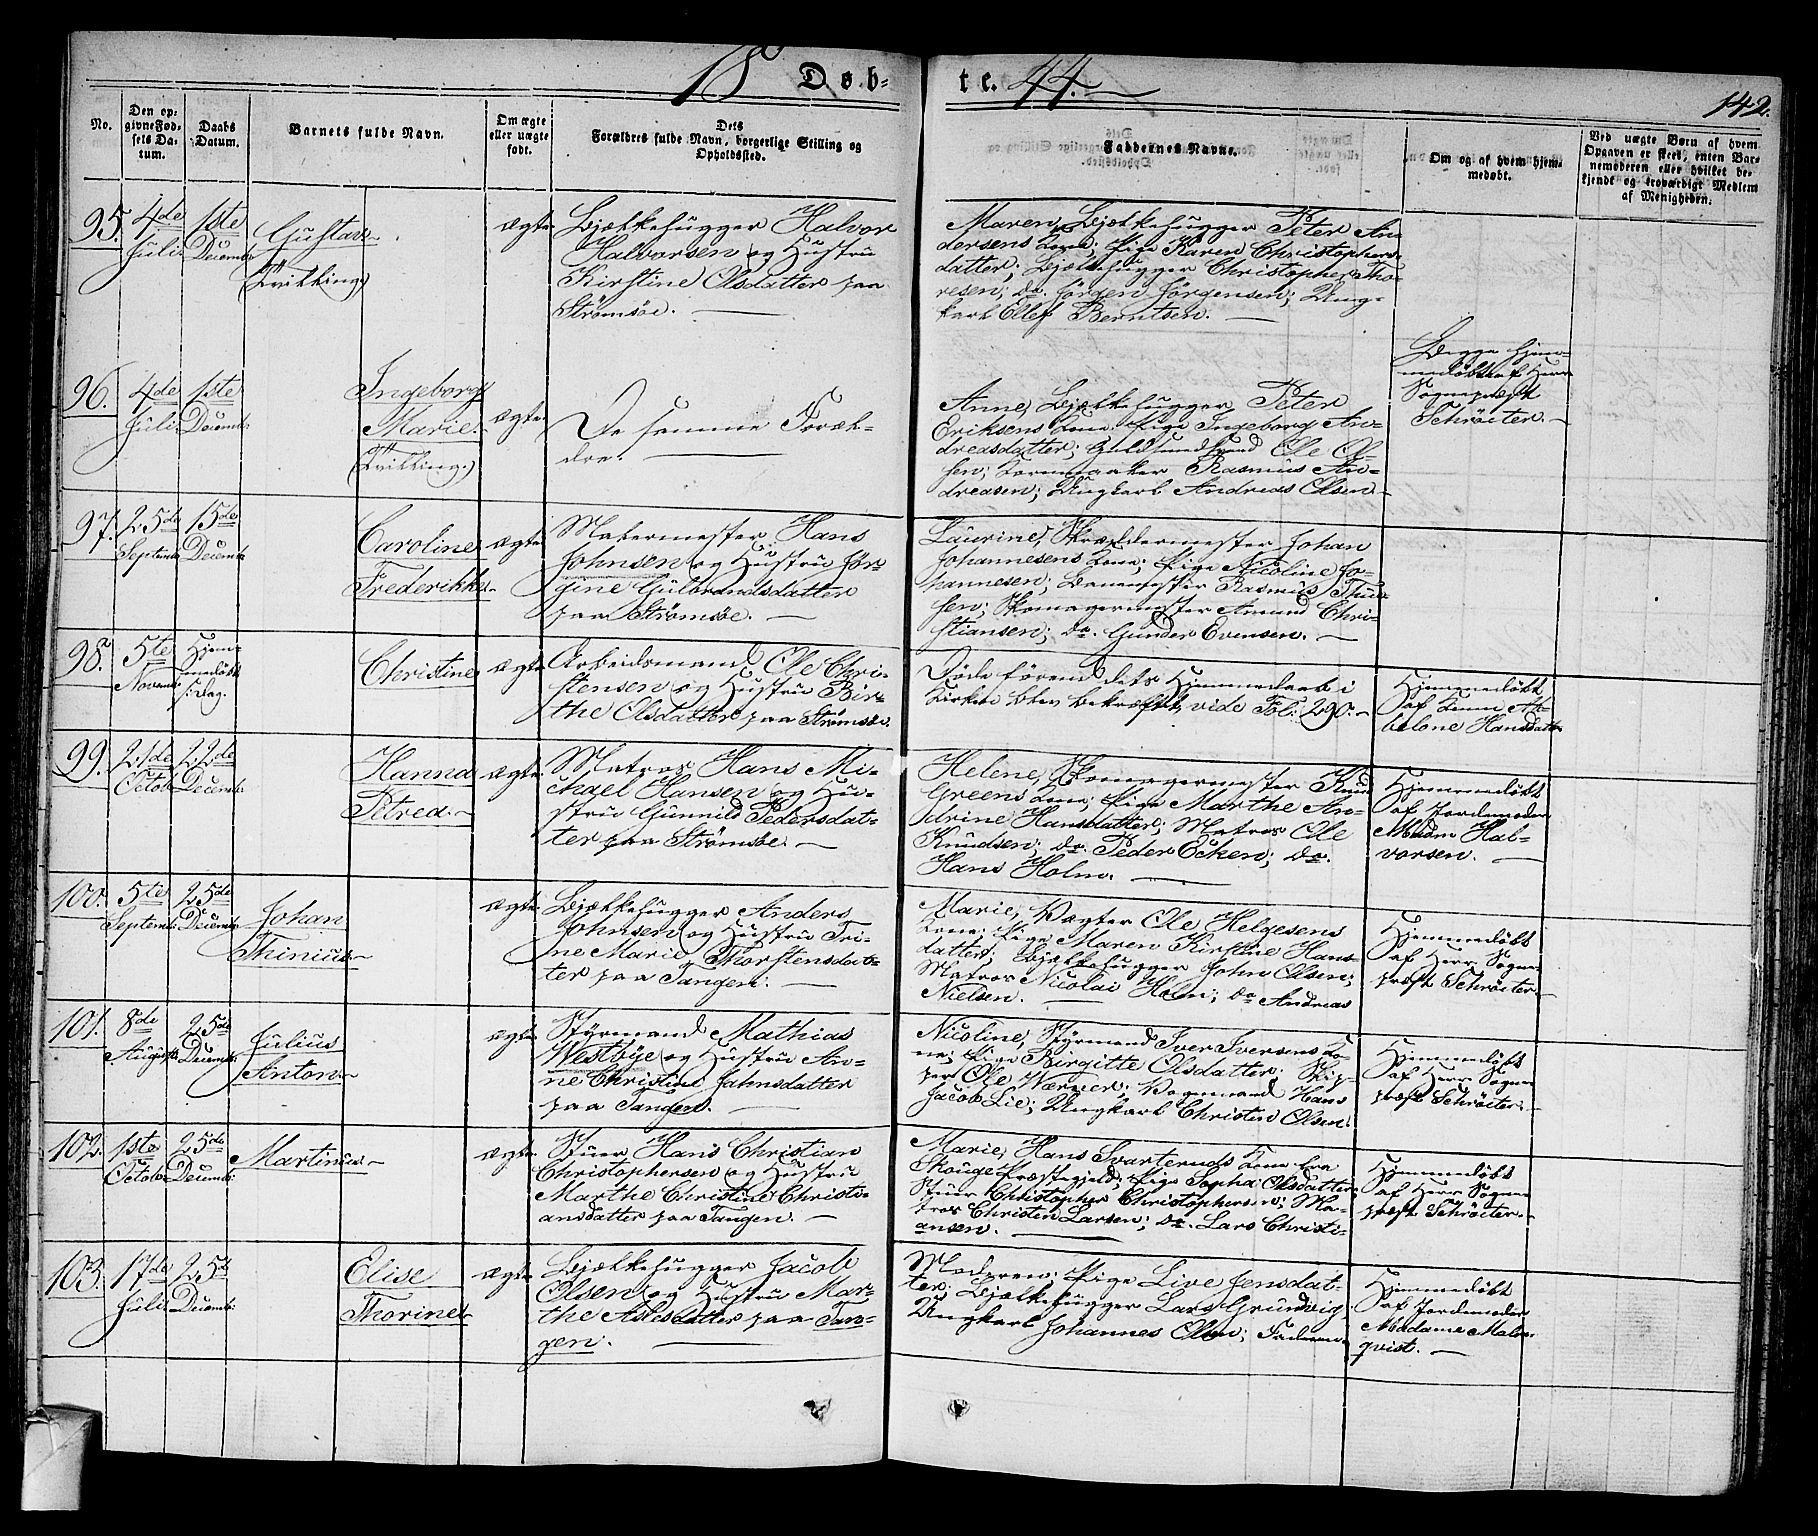 18 Døb-
te. 44.
142.
No.
Den op-
givne Fød-
sels Da-
tum.
Daabs
Datum.
Barnets fulde Navn.
Om ægte
eller uægte
født.
Dets
Forældres fulde Navn, borgerlige Stilling og
Opholdssted.
Faddernes Navne.
Om og af hvem hjem-
medøbt.
Ved uægte Børn af hvem
Opgaven er skeet, enten Bar-
nemoderen eller hvilket be-
kjendt og troværdigt Medlem
af Menigheden.
95. 4de
Juli
1ste
Decemb:
Gustav
(Tvilling)
ægte
Bjælkehugger Halvor
Halvorsen og Hustru
Kirstine Olsdatter paa
Strømsøe.
Maren, Bjælkehugger Peter An-
dersens Kone; Pige Karen Christophers-
datter; Bjælkehugger Christopher Tho-
resen; do. Jørgen Jørgensen; Ung-
karl Ellef Berntsen.
96. 4de
Juli
1ste
Decemb:
Ingeborg
Marie
(Tvilling)
ægte
De samme Foræl-
dre.
Anne, Bjælkehugger Peter
Eriksens Kone; Pige Ingeborg An-
dreasdatter; Guldsmedsvend Ole Ol-
sen; Rasmus An-
dreasen; Ungkarl Andreas Olsen
Begge hjem-
medøbt af Herr
Sognepræst
Schrøiter.
97. 25de
Septemb:
15de
Decemb:
Caroline
Frederikke
ægte
Malermester Hans
Johnsen og Hustru Jør-
gine Gulbrandsdatter
paa Strømsøe.
Laurine, Skræddermester Johan
Johannesens Kone; Pige Nicoline Jo-
hannesen; Rasmus Thue-
sen; Skomagermester Amund Chri-
stiansen; do. Gunder Evensen.
98. 5te
Novemb:
Hjem-
medøbt
s: Dag.
Christine
ægte
Arbeidsmand Ole Chri-
stensen og Hustru Bir-
the Olsdatter paa Strømsøe.
Døde førend dets Hjemmedaab i
Kirken blev bekræftet, vide Fol: 290.
Hjemmedøbt
af Konen A-
belone Hansdatter
99. 21de
Octob:
22de
Decemb:
Hanna
Petrea.
ægte
Matros Hans Mi-
chael Hansen og Hu-
stru Gunnild Pedersdat-
ter paa Strømsøe.
Helene, Skomagermester Knud
Greens Kone; Pige Marthe An-
drine Hansdatter; Matros Ole
Knudsen; do. Peder Ecken; do.
Hans Holm.
Hjemmedøbt
af Jordemoder
Madm Hal-
vorsen.
100. 5te
Septemb:
25de
Decemb:
Johan
Thinius
ægte
Bjælkehugger Anders
Johnsen og Hustru Tri-
ne Marie Thorstensdat-
ter paa Tangen.
Marie, Vægter Ole Helgesens
Kone; Pige Maren Kirstine Hans-
datter; Bjælkehugger John Olsen;
Matros Nicolai Holm; do Andreas
Nielsen.
Hjemmedøbt
af Herr Sogne-
præst Schrøiter
101. 8de
August
25de
Decemb:
Julius
Anton
ægte
Styrmand Mathias
Westbye og Hustru An-
ne Christine Jahnsdatter
paa Tangen.
Nicoline, Styrmand Iver Iversens Ko-
ne; Pige Birgitte Olsdatter; Skip-
per Ole Wærner; Vognmand Hans
Jacob Lie; Ungkarl Christen Olsen.
Hjemmedøbt
af Herr Sogne-
præst Schrøiter.
102. 1ste
Octob:
25de
Decemb:
Martinus
ægte
Stuer Hans Christian
Christophersen og Hustru
Marthe Christine Christi-
ansdatter paa Tangen.
Marie, Hans Svarteruds Kone fra
Skouge Præstegjeld; Pige Sophia Olsdatter;
Stuer Christopher Christophersen; Ma-
tros Christen Larsen; do. Lars Christi-
ansen.
Hjemmedøbt
af Herr Sogne-
præst Schrøiter.
103. 17de
Juli
25de
Decemb:
Elise
Thorine
ægte
Bjælkehugger Jacob
Olsen og Hustru Mar-
the Aslesdatter paa Tan-
gen.
Moderen; Pige Live Jensdat-
ter; Bjælkehugger Lars Grundvig
Ungkarl Johannes Olsen; Faderen
Hjemmedøbt
af Jordemoder
Madame Malm-
qvist.